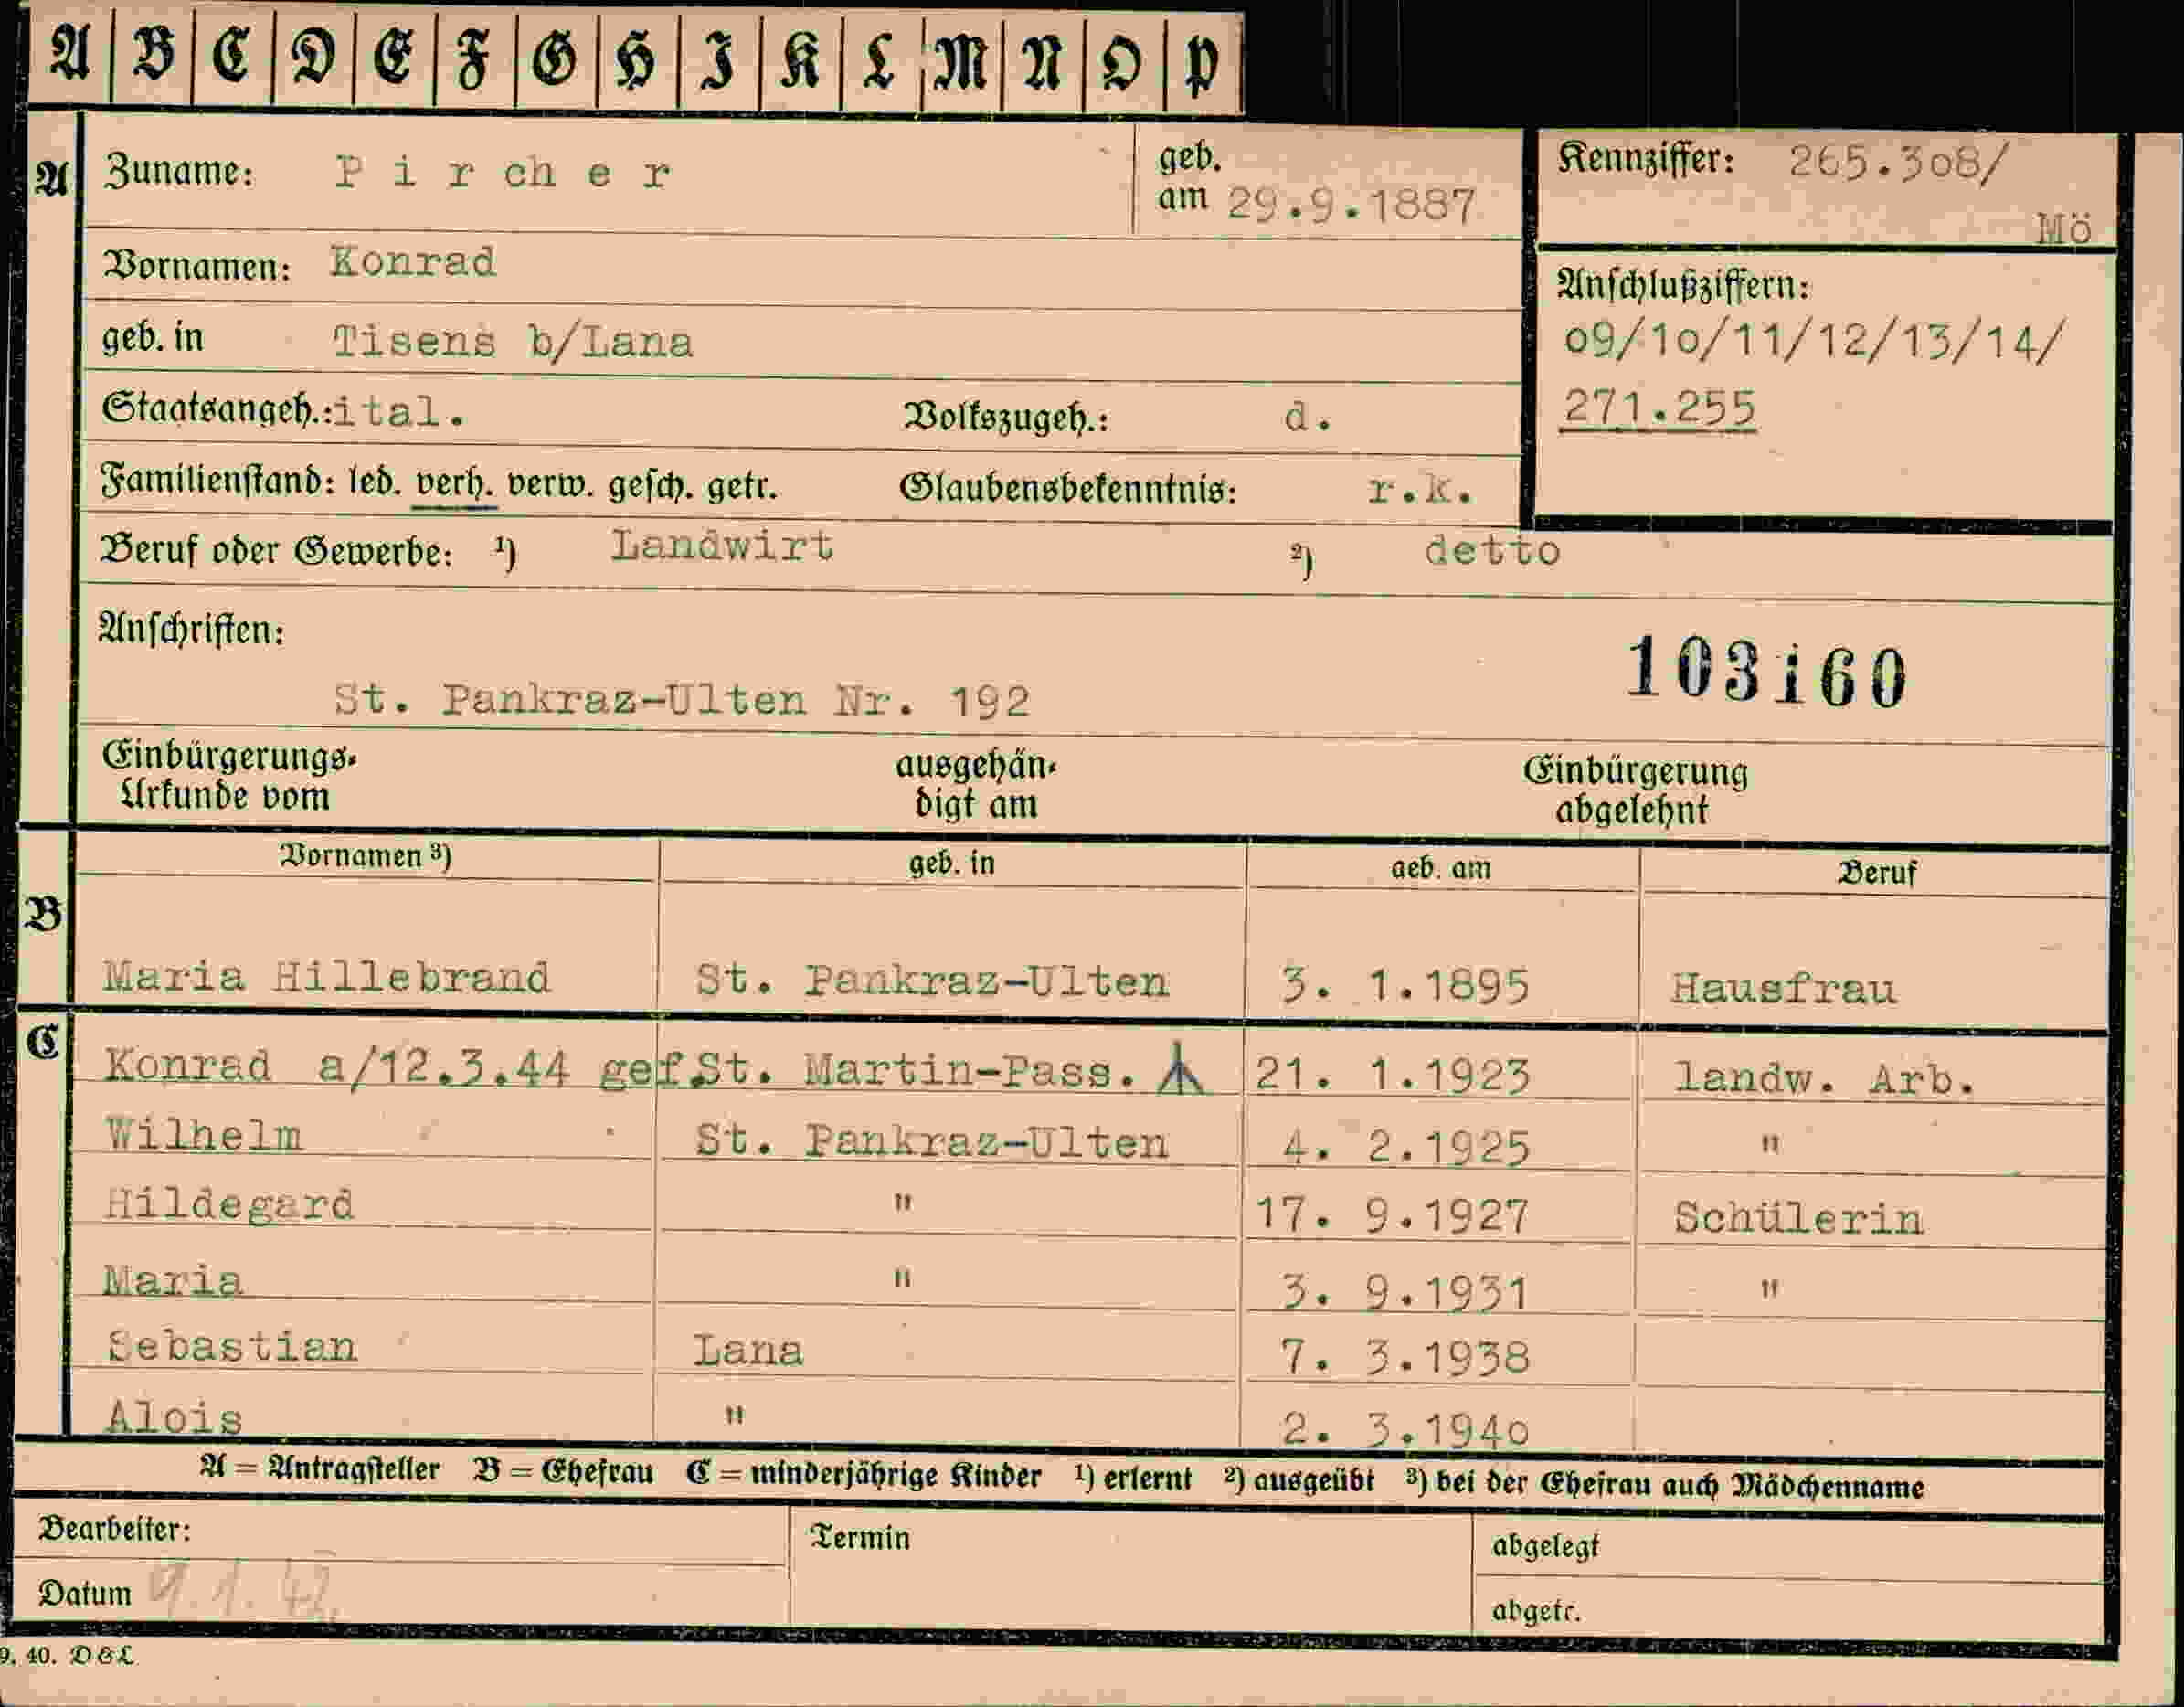 A B C D E F G H I K L M N O P
A Zuname: Pircher geb. am 29.9.1887 Kennziffer: 265.308/
Mö
Vornamen: Konrad
Anschlußziffern:
geb. in Tisens b/Lana 09/10/11/12/13/14/
Staatsangeh.: ital. Volkszugeh.: d. 271.255
Familienstand: led. verh. verw. gesch. getr. Glaubensbekenntnis: r.k.
Beruf oder Gewerbe: ¹) Landwirt ²) detto
Anschriften:
103160
St. Pankraz-Ulten Nr. 192
Einbürgerungs-Urkunde vom ausgehän-digt am Einbürgerung abgelehnt
Vornamen ³) geb. in geb. am Beruf
B
Maria Hillebrand St. Pankraz-Ulten 3. 1.1895 Hausfrau
C
Konrad a/12.3.44 gef. St. Martin-Pass. 21. 1.1923 landw. Arb.
Wilhelm St. Pankraz-Ulten 4. 2.1925 "
Hildegard " 17. 9.1927 Schülerin
Maria " 3. 9.1931 "
Sebastian Lana 7. 3.1938
Alois " 2. 3.1940
A = Antragsteller B = Ehefrau C = minderjährige Kinder ¹) erlernt ²) ausgeübt ³) bei der Ehefrau auch Mädchenname
Bearbeiter: Termin abgelegt
Datum abgetr.
9. 40. D&L